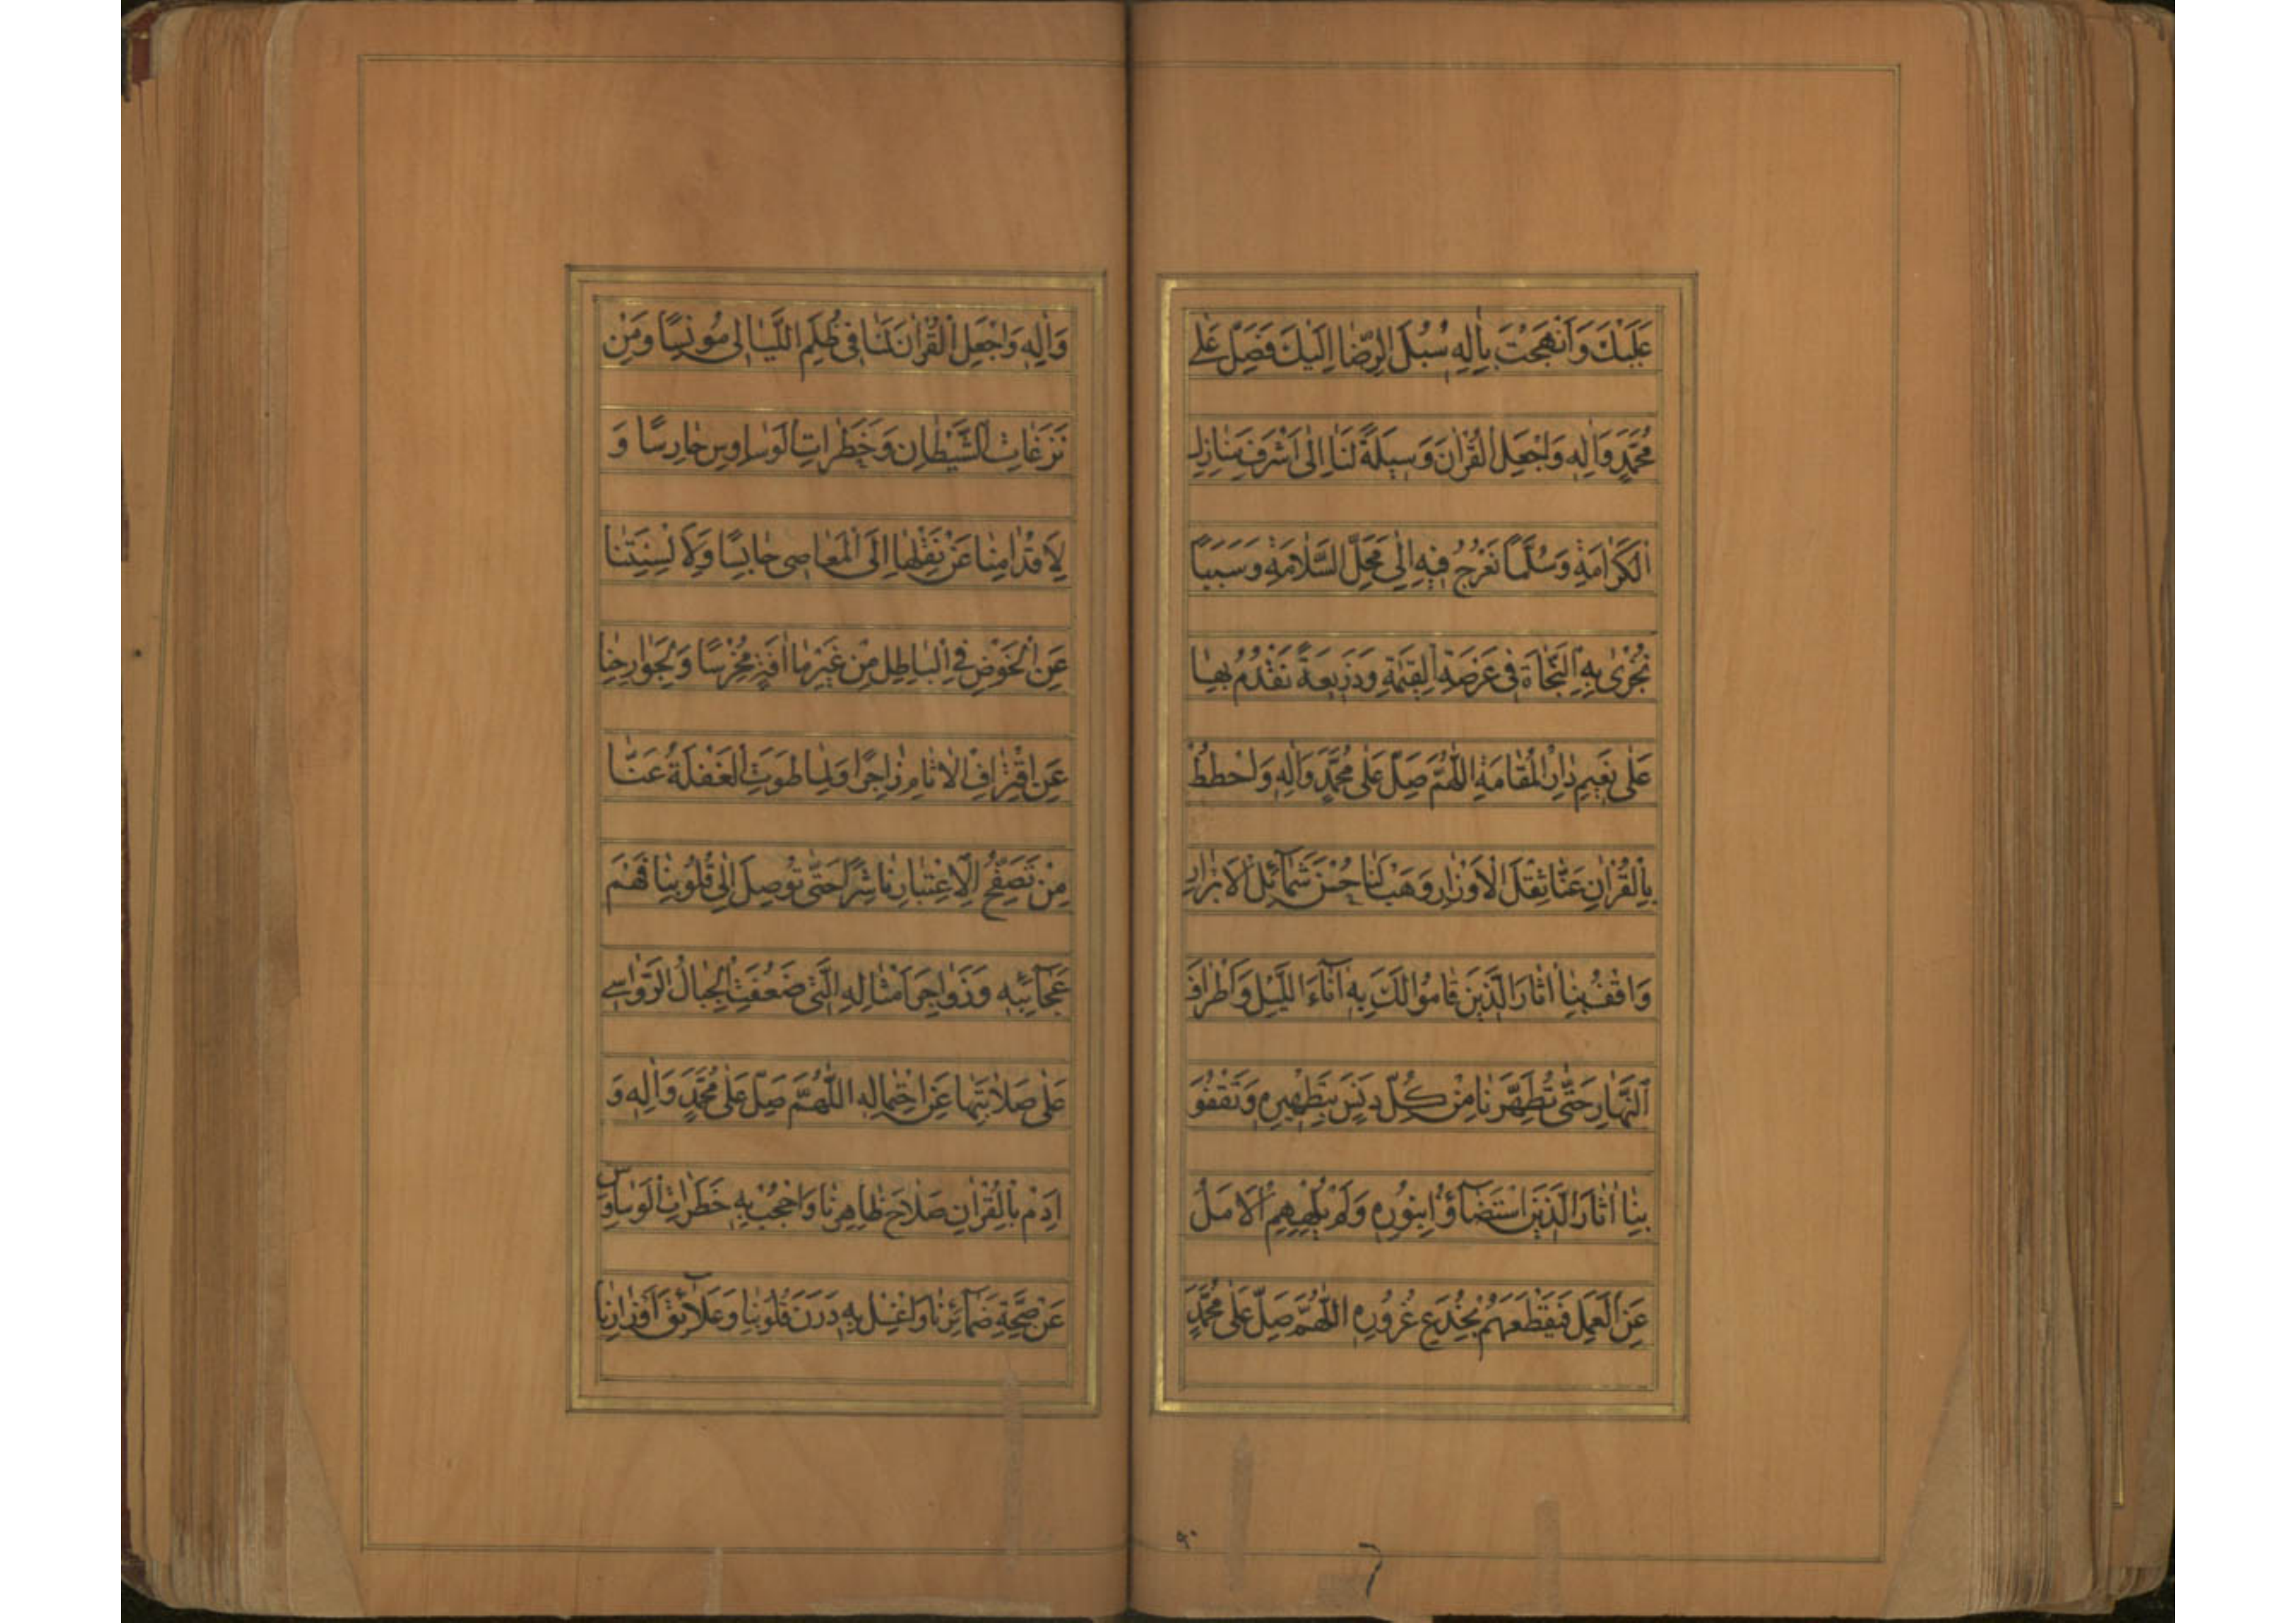 عَلَيْكَ وَاَنْهَجْتَ بِاٰلِهِ سُبُلَ الرِّضَا اِلَيْكَ فَصَلِّ عَلٰى
مُحَمَّدٍ وَاٰلِهِ وَاجْعَلِ الْقُرْاٰنَ وَسِيلَةً لَنَا اِلٰى اَشْرَفِ مَنَازِلِ
الْكَرَامَةِ وَسُلَّمًا نَعْرُجُ فِيهِ اِلٰى مَحَلِّ السَّلَامَةِ وَسَبَبًا
نُجْزٰى بِهِ النَّجَاةَ فِى عَرْصَةِ الْقِيٰمَةِ وَذَرِيعَةً نَقْدُمُ بِهَا
عَلٰى نَعِيمِ دَارِ الْمُقَامَةِ اللّٰهُمَّ صَلِّ عَلٰى مُحَمَّدٍ وَاٰلِهِ وَاحْطُطْ
بِالْقُرْاٰنِ عَنَّا ثِقْلَ الْاَوْزَارِ وَهَبْ لَنَا حُسْنَ شَمَآئِلِ الْاَبْرَارِ
وَاقْفُ بِنَا اٰثَارَ الَّذِينَ قَامُوا لَكَ بِهِ اٰنَآءَ اللَّيْلِ وَاَطْرَافَ
النَّهَارِ حَتّٰى تُطَهِّرَنَا مِنْ كُلِّ دَنَسٍ بِتَطْهِيرِهِ وَتَقْفُوَ
بِنَا اٰثَارَ الَّذِينَ اسْتَضَآؤُا بِنُورِهِ وَلَمْ يُلْهِهِمُ الْاَمَلُ
عَنِ الْعَمَلِ فَيَقْطَعَهُمْ بِخُدَعِ غُرُورِهِ اللّٰهُمَّ صَلِّ عَلٰى مُحَمَّدٍ
٩٠
وَاٰلِهِ وَاجْعَلِ الْقُرْاٰنَ لَنَا فِى ظُلَمِ اللَّيَالِى مُونِسًا وَمِنْ
نَزَغَاتِ الشَّيْطَانِ وَخَطَرَاتِ الْوَسَاوِسِ حَارِسًا وَ
لِاَقْدَامِنَا عَنْ نَقْلِهَا اِلَى الْمَعَاصِى حَابِسًا وَلِاَلْسِنَتِنَا
عَنِ الْخَوْضِ فِى الْبَاطِلِ مِنْ غَيْرِ مَا اٰفَةٍ مُخْرِسًا وَلِجَوَارِحِنَا
عَنِ اقْتِرَافِ الْاٰثَامِ زَاجِرًا وَلِمَا طَوَتِ الْغَفْلَةُ عَنَّا
مِنْ تَصَفُّحِ الْاِعْتِبَارِ نَاشِرًا حَتّٰى تُوصِلَ اِلٰى قُلُوبِنَا فَهْمَ
عَجَآئِبِهِ وَزَوَاجِرَ اَمْثَالِهِ الَّتِى ضَعُفَتِ الْجِبَالُ الرَّوَاسِى
عَلٰى صَلَابَتِهَا عَنِ احْتِمَالِهِ اللّٰهُمَّ صَلِّ عَلٰى مُحَمَّدٍ وَاٰلِهِ وَ
اَدِمْ بِالْقُرْاٰنِ صَلَاحَ ظَاهِرِنَا وَاحْجُبْ بِهِ خَطَرَاتِ الْوَسَاوِسِ
عَنْ صِحَّةِ ضَمَآئِرِنَا وَاغْسِلْ بِهِ دَرَنَ قُلُوبِنَا وَعَلَآئِقَ اَوْزَارِنَا